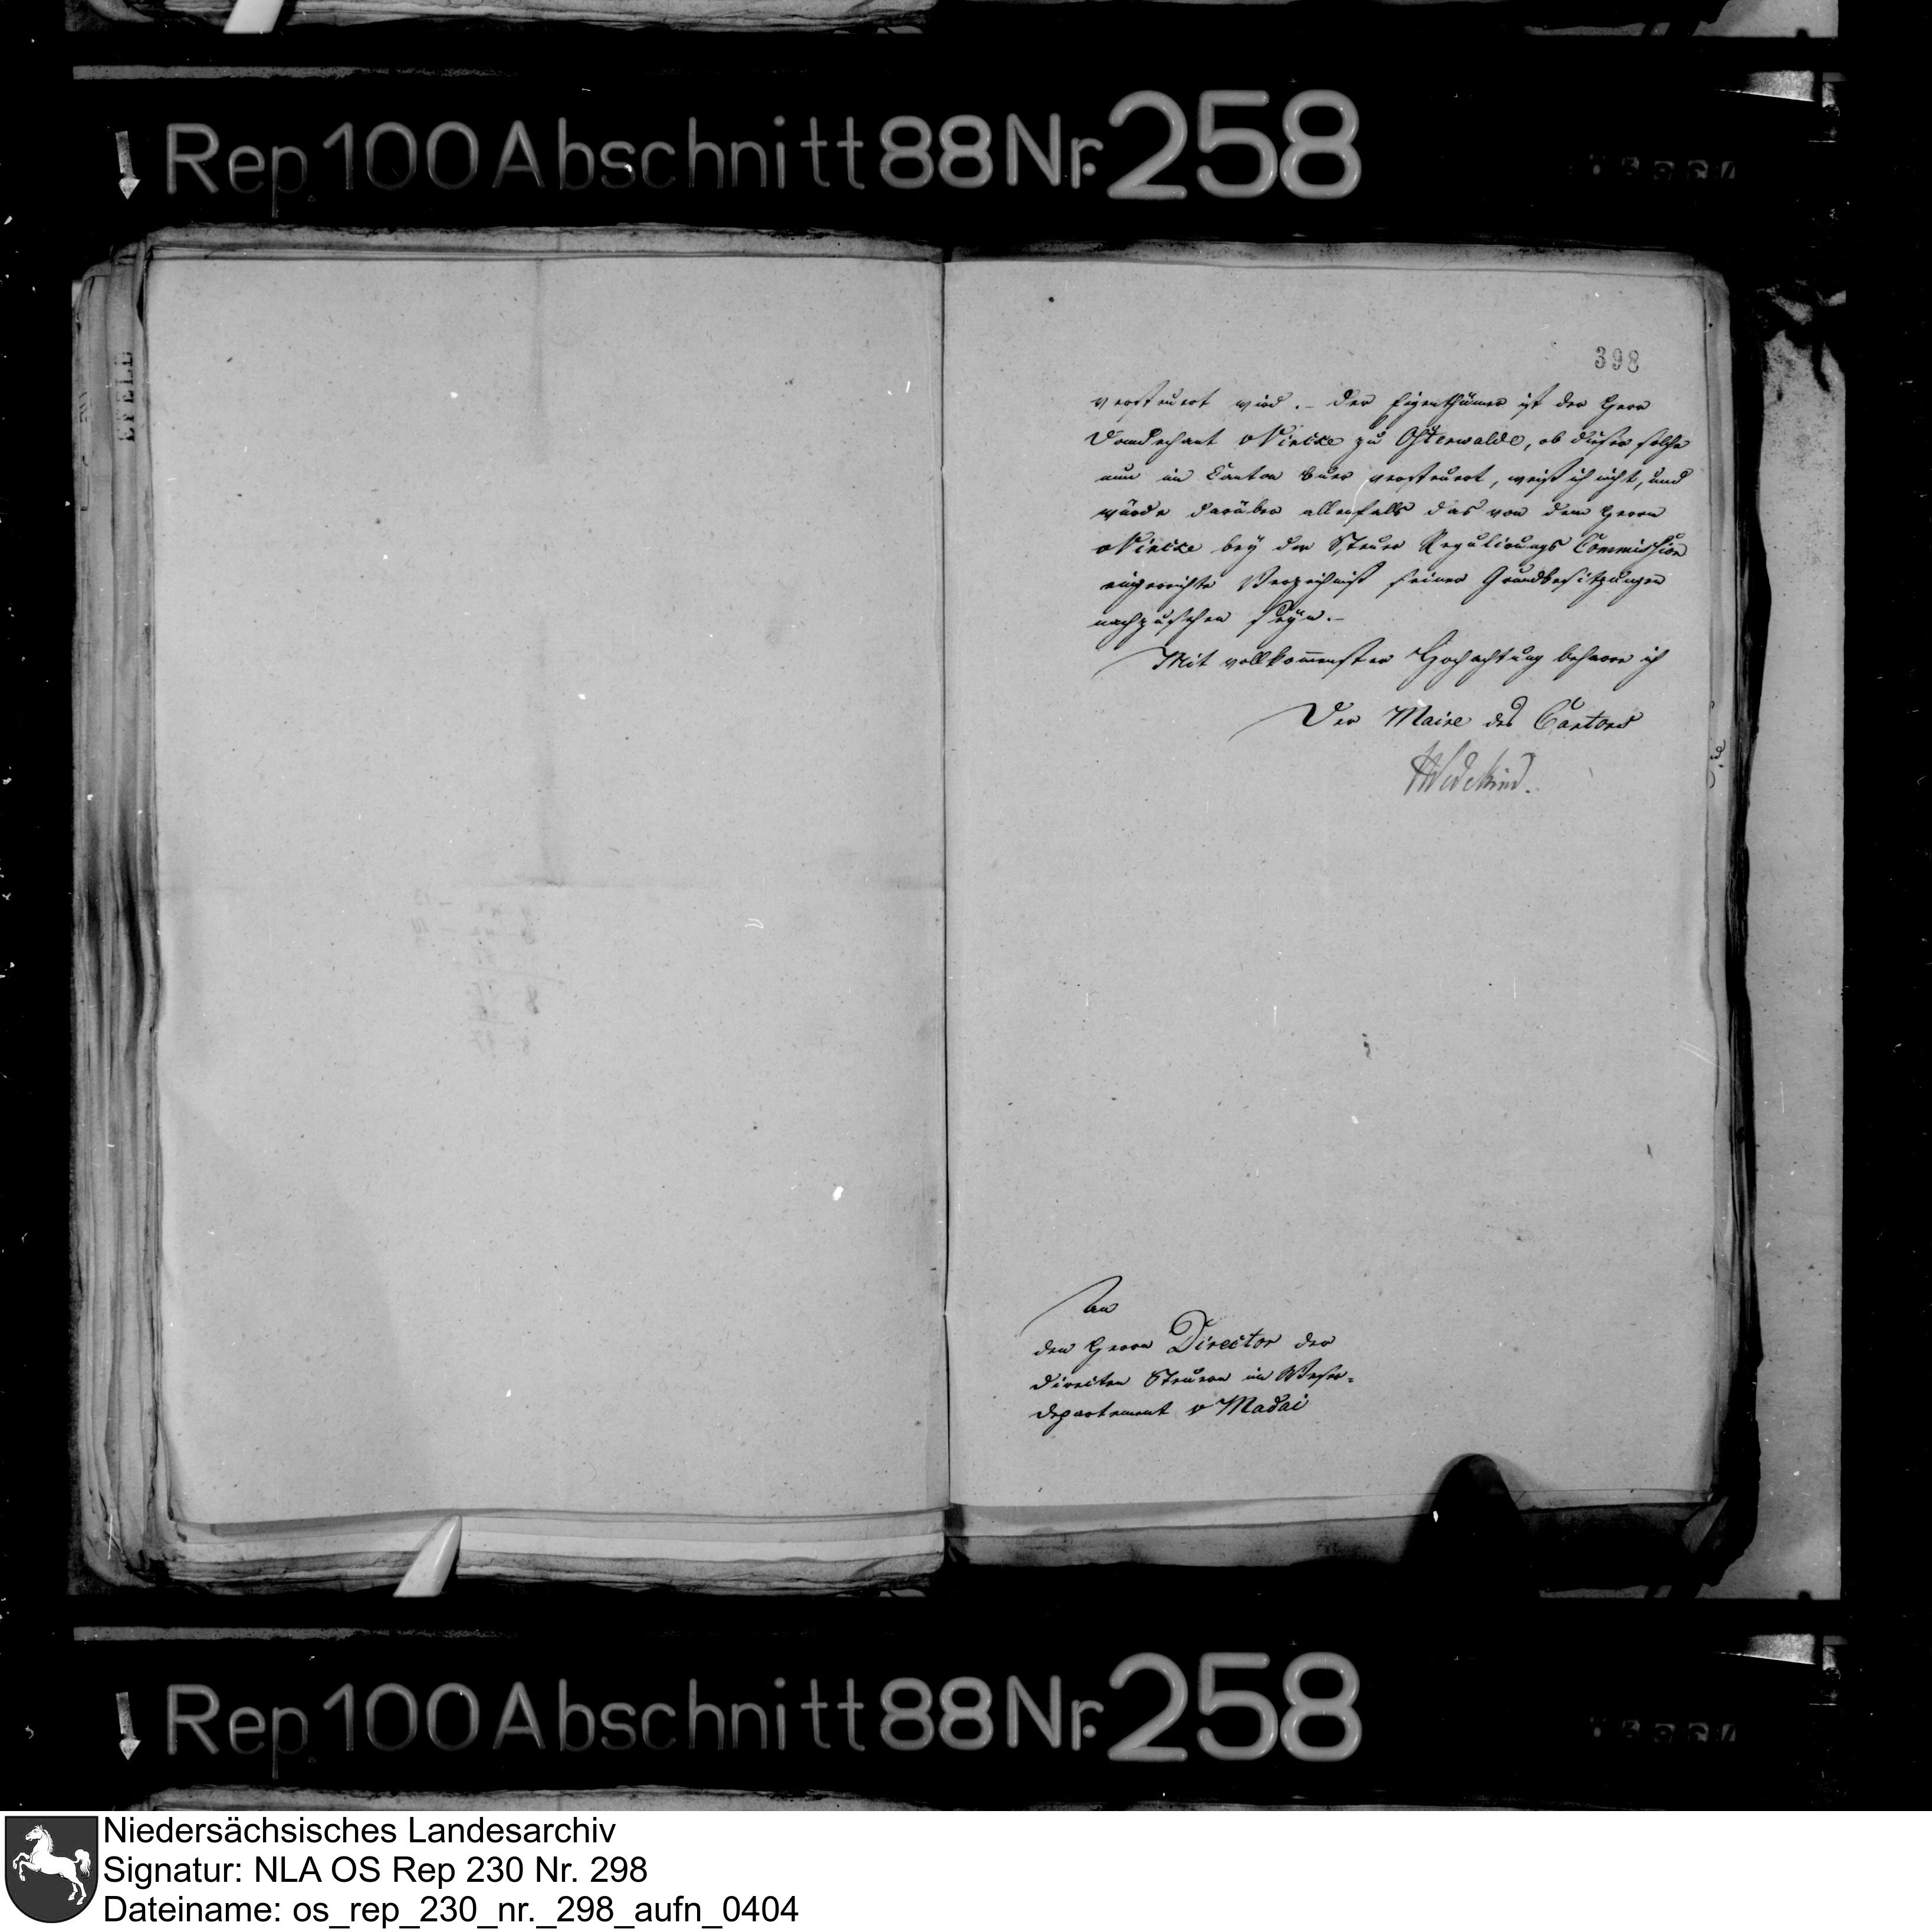 Rep. 100 Abschnitt 88 Nr. 258
398
versteuert wird. – Der Eigenthümer ist der Herr
Domdechant v Vincke zu Ostenwalde, ob dieser solche
nun im Canton Buer versteuert, weiß ich nicht, und
würde darüber allenfalls das von dem Herrn
v Vincke bey der Steuer Regulirungs Commission
eingereichte Verzeichniß seiner Grundbesitzungen
nachzusehen seyn. –
Mit vollkom̅enster Hochachtung beharre ich
Der Maire des Cantons
Wedekind.
An
den Herrn Director der
directen Steuern im Weser-
departement v Madai
Rep. 100 Abschnitt 88 Nr. 258
Niedersächsisches Landesarchiv
Signatur: NLA OS Rep 230 Nr. 298
Dateiname: os_rep_230_nr._298_aufn_0404